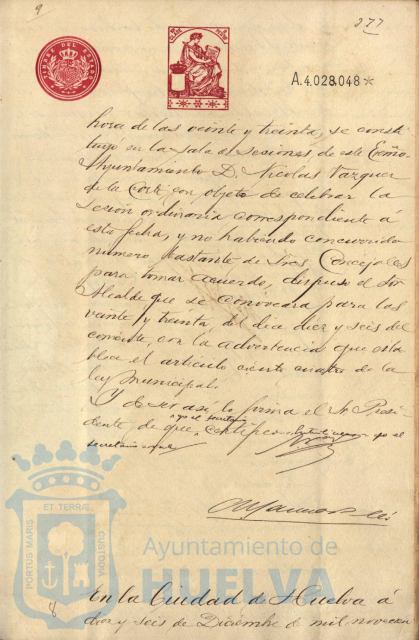 9
277
TIMBRE DEL ESTADO
A.4.028.048*
hora de las veinte y treinta, se consti
tuyo en la Sala de Sesiones de este Excmo.
Ayuntamiento D. Nicolas Vazquez
de la Corte con objeto de celebrar la
sesion ordinaria correspondiente á
esta fecha, y no habiendo concurrido
numero bastante de Sres Concejales
para tomar acuerdo, dispuso el Sor
Alcalde que se convocara para las
veinte y treinta, del dia diez y seis del
corriente, con la advertencia que esta
blece el articulo ciento cuatro de la
ley Municipal.
Y de ser asi, lo firma el Sr Presi
dente de que, yo el secretario certifico = yo el
secretario =
PORTUS MARIS ET TERRÆ CUSTODIA
Ayuntamiento de
HUELVA
8
En la Ciudad de Huelva á
diez y seis de Diciembre de mil novecien